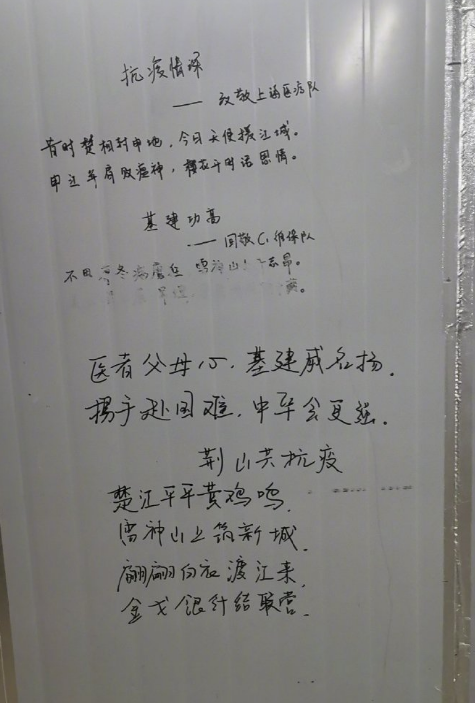 抗疫情深
——致敬上海医疗队
昔时楚相封申地，今日天使援江城。
申江年肩殴瘟神，樱花下时话恩情。
基建功高
——回敬C1维保队
不畏寒冬病魔 雷神山上 志昂。
医者父母心，基建威名扬。
携手赴国难，中华会更强。
荆山共抗疫
楚江平平黄鸡鸣，
雷神山上筑新城，
翩翩白衣渡江来，
金戈银针结联营。